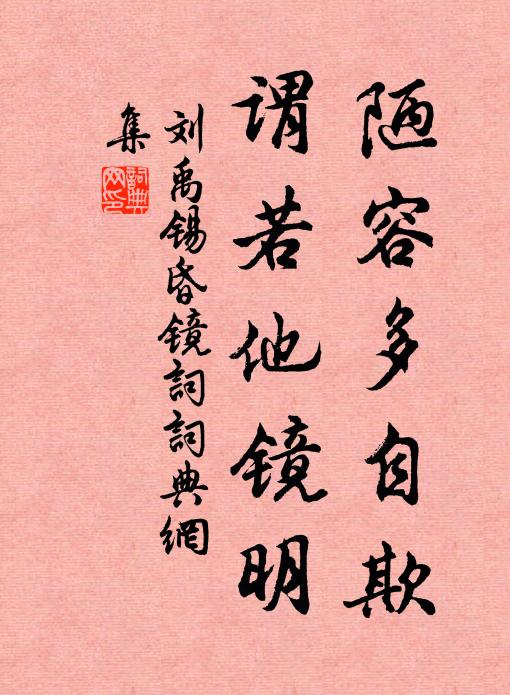 陋容多自欺
谓若他镜明
刘禹锡昏镜詞詞典網
集
詞典网印